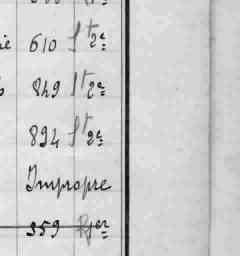 610 St 2e
849 St 2e
894 St 2e
Impropre
359